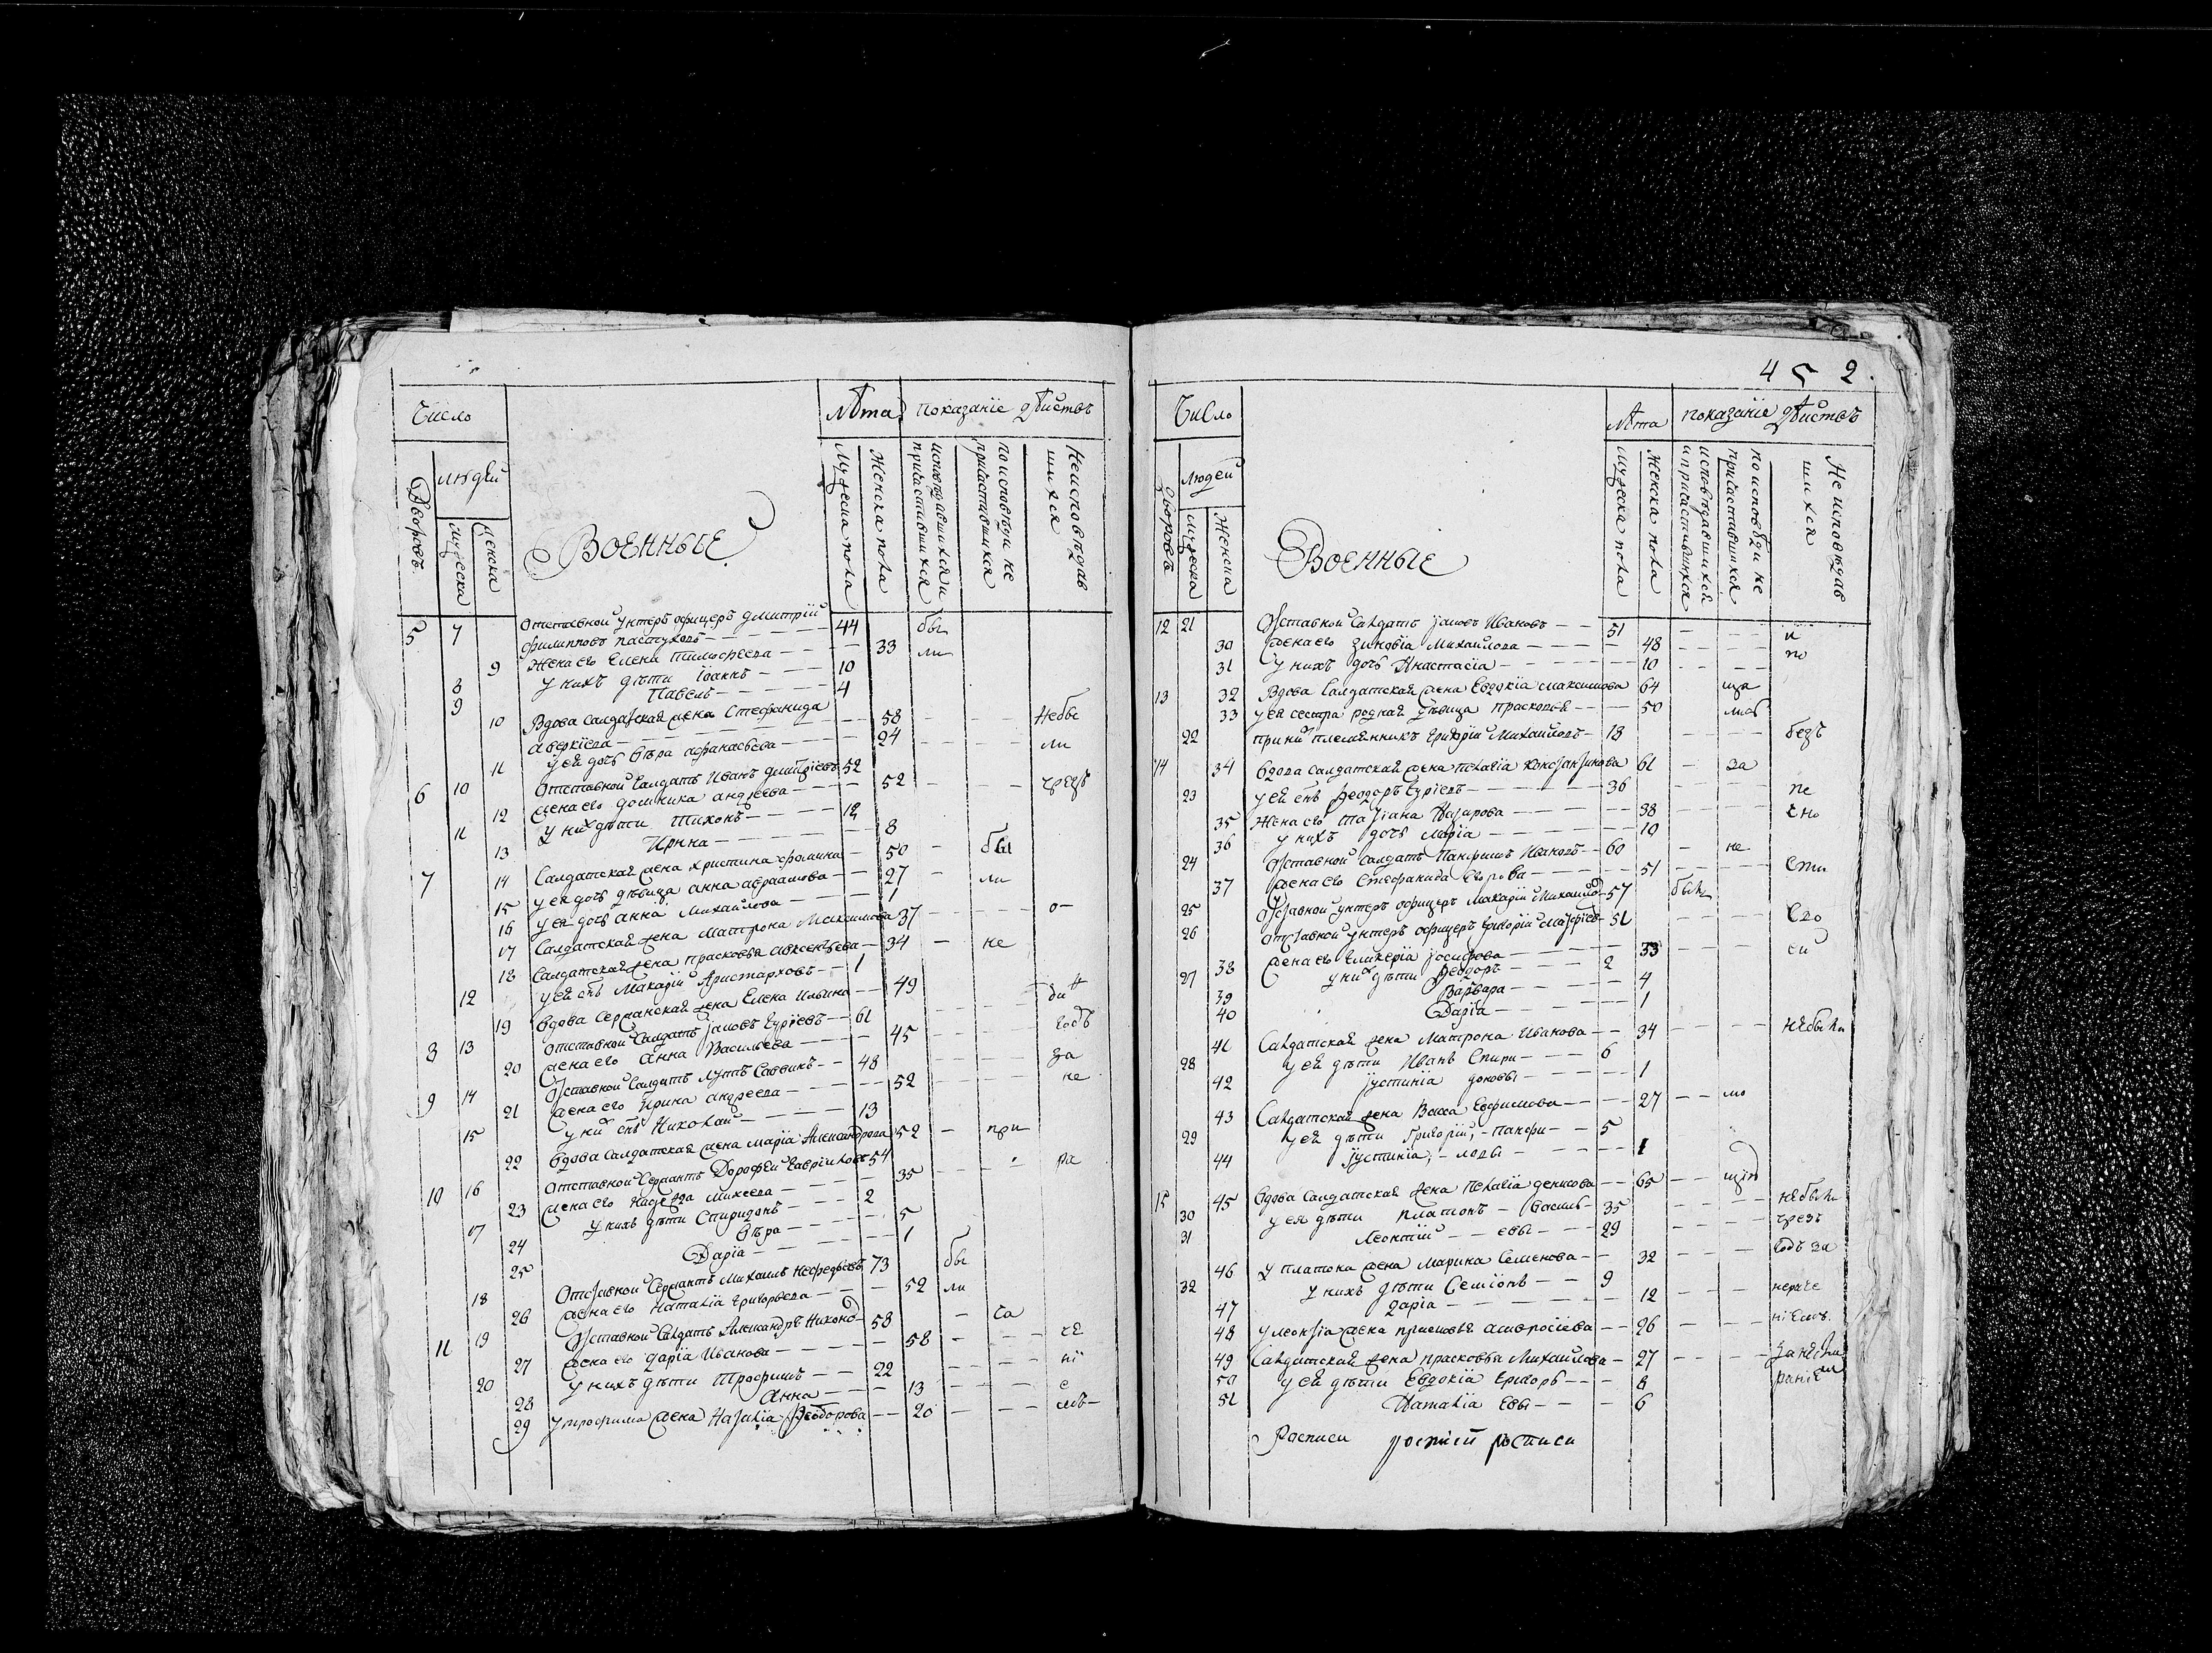 Число
Лѣта показаніе дѣйствъ
людей
Дворовъ
мужеска
женска
Военные
Мужеска пола
Женска пола
исповѣдавшихся и причастившихся
по исповѣди не причастившихся
Не исповѣдавшихся
5 7 Отставной унтеръ офицеръ Димитрій
Филипповъ пастуховъ — 44 бы
9 Жена его Елена Тимофеева — 33 ли
8 у нихъ дѣти Іоаннъ — 10
9 Павелъ — 4
10 Вдова салдатская жена Стефанида
Аверкіева — 58 — Небы
11 у ея дочь Вѣра Афанасьева — 24 — ли
6 10 Отставной Салдатъ Иванъ Димитріевъ 52
12 жена его Домника Андреева — 52 — чрезъ
11 у них дѣти Тихонъ — 12
13 Ирина — 8
7 14 Салдатская жена Христина Фомина — 50 — бы
15 у ея дочь дѣвица Анна Авраамова — 27 — ли
16 у ея дочь Анна Михайлова — 1
17 Салдатская жена Матрона Максимова 37 — о —
18 Салдатская жена Прасковья Авксентьева — 34 — не
12 у ея снъ Макарій Аристарховъ — 1
19 Вдова Сержанская жена Елена Ильина — 49 — дин
8 13 Отставной Салдатъ Іаковъ Гурьевъ — 61 — годъ
20 жена его Анна Васильева — 45 — за
9 14 Отставной Салдатъ Лупъ Саввинъ — 48
21 жена его Ирина Андреева — 52 — не
15 у них снъ Николай — 13
22 Вдова Салдатская жена Марія Александрова 52 — при
10 16 Отставной Сержантъ Дорофей Гавриловъ 54
23 жена его Надежда Михеева — 35 — ра
17 у нихъ дѣти Спиридонъ — 2
24 Вѣра — 5
25 Дарія — 1
18 Отставной Сержантъ Михаилъ Нефедьевъ 73 бы
26 жена его Наталія Григорьева — 52 ли
11 19 Отставной Салдатъ Александръ Никоно 58 — са
27 жена его Дарія Иванова — 58 — че
20 у нихъ дѣти Трофимъ — 22 — ні
28 Анна — 13 — е
29 у трофима жена Наталія Ѳеодорова — 20 — мъ —
4 5 2.
Число
Лѣта показаніе дѣйствъ
Людей
Дворовъ
мужеска
Женска
Военные
Мужеска пола
Женска пола
исповѣдавшихся и причастившихся
по исповѣди не причаставшихся
Не исповѣдавшихся
12 21 Отставной Салдатъ Іаковъ Ивановъ — 51 — и
30 жена его Зиновіа Михайлова — 48 — по
31 у нихъ дочь Анастасіа — 10
13 32 Вдова Салдатская жена Евдокіа Максимова 64 ща
33 у ея сестра родная дѣвица Прасковья — 50
22 при них племянникъ Григорій Михайловъ — 13 безъ
14 34 Вдова салдатская жена Пелагіа Константинова 61 — за
23 у ея снъ Ѳеодоръ Гуріевъ — 36 — пе
35 Жена его Татіана Назарова — 38
36 у нихъ дочь Марія — 10
24 Отставной салдатъ Панфилъ Ивановъ — 60 — не
37 жена его Стефанида Егорова — 51
25 Отставной унтеръ офицеръ Макарій Михайло 57 были
26 Отставной унтеръ офицеръ Григорій Матфіевъ 51
38 жена его Гликеріа Іосифова — 33 — ей
27 у них дѣти Ѳеодоръ — 2
39 Варвара — 4
40 Дарія — 1
41 Салдатская жена Матрона Иванова — 34 — небыли
28 у ея дѣти Иванъ Спири — 6
42 Іустиніа доновы — 1
43 Салдатская жена Васса Евфимова — 27 — мо
29 у ея дѣти Григорій, — панфи — 5
44 Іустиніа, — ловы — 1
15 45 Вдова Салдатская жена Пелагіа Денисова — 65
30 у ея дѣти Платонъ — Василь — 35 — небыли
31 Леонтій — евы — 29 — чрезъ
46 у платона жена Марина Семенова — 32 — годъ за
32 у нихъ дѣти Семіонъ — 9
47 дарія — 12
48 у леонтіа жена прасковья Амвросіева — 26 — ніемъ.
49 Салдатская жена прасковья Михайлова — 27
50 у ея дѣти Евдокіа Григорь — 8
51 Наталіа евы — 6
Росписи росписи